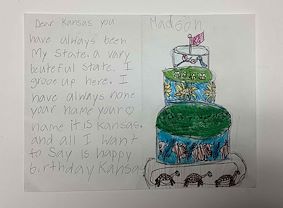 Dear Kansas you
have always been
My State. a vary
beuteful State. I
grove up here. I
have always none
your name your ♡
name it is Kansas.
and all I want
to Say is happy
birthday Kansas
Madison